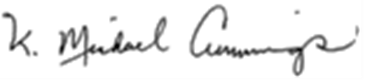 K. Michael Cummings